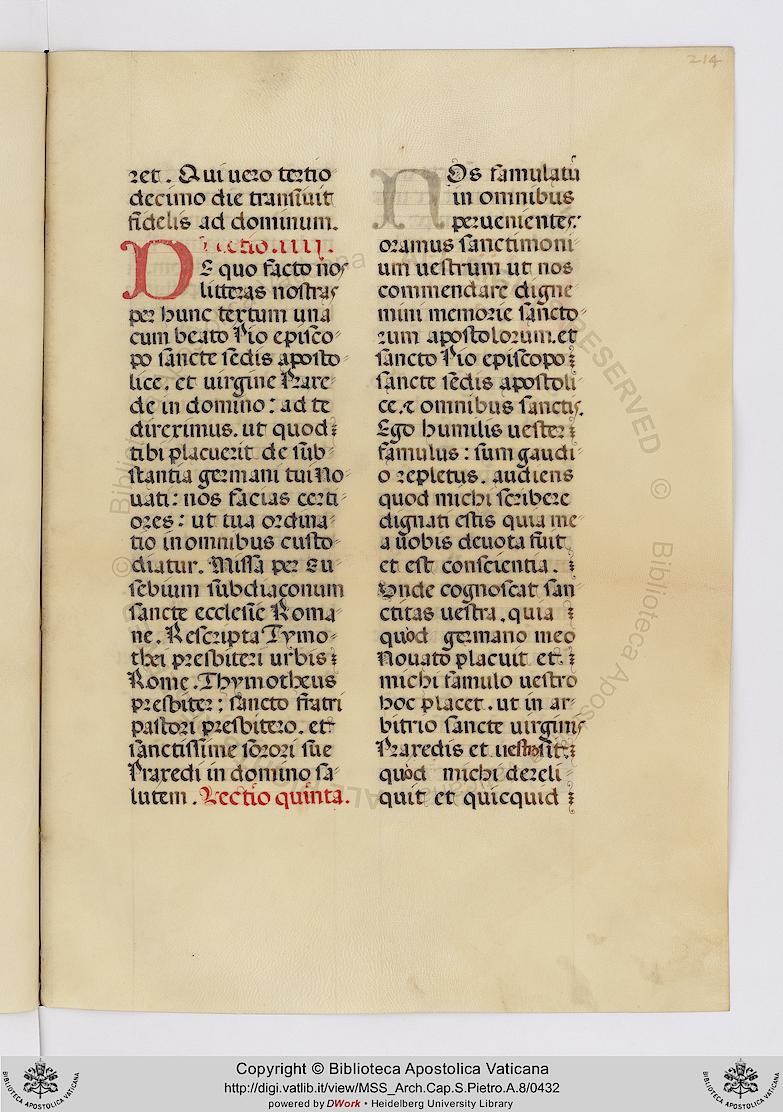 214
ret. Qui uero tertio
decimo die transiuit
fidelis ad dominum.
Lectio.IIII.
DE quo facto nos
litteras nostras
per hunc textum una
cum beato Pio episco
po sancte sedis aposto
lice. et uirgine Praxe
de in domino: ad te
direximus. ut quod
tibi placuerit de sub
stantia germani tui No
uati: nos facias certi
ores: ut tua ordina
tio in omnibus custo
diatur. Missa per Eu
sebium subdiaconum
sancte ecclesie Roma
ne. Rescripta Tymo
thei presbiteri urbis
Rome. Thymotheus
presbiter: sancto fratri
pastori presbitero. et
sanctissime sorori sue
Praxedi in domino sa
lutem. Lectio quinta.
NOs famulatū
in omnibus
peruenientes:
oramus sanctimoni
um uestrum ut nos
commendare digne
mini memorie sancto
rum apostolorum. et
sancto Pio episcopo
sancte sedis apostoli
ce. ⁊ omnibus sanctis.
Ego humilis uester
famulus: sum gaudi
o repletus. audiens
quod michi scribere
dignati estis quia me
a uobis deuota fuit
et est conscientia.
Unde cognoscat san
ctitas uestra. quia
quod germano meo
Nouato placuit et
michi famulo uestro
hoc placet. ut in ar
bitrio sancte uirginis
Praxedis et uestro sit.
quod michi dereli
quit et quicquid
Copyright © Biblioteca Apostolica Vaticana
http://digi.vatlib.it/view/MSS_Arch.Cap.S.Pietro.A.8/0432
powered by DWork • Heidelberg University Library
BIBLIOTECA APOSTOLICA VATICANA
BIBLIOTECA APOSTOLICA VATICANA